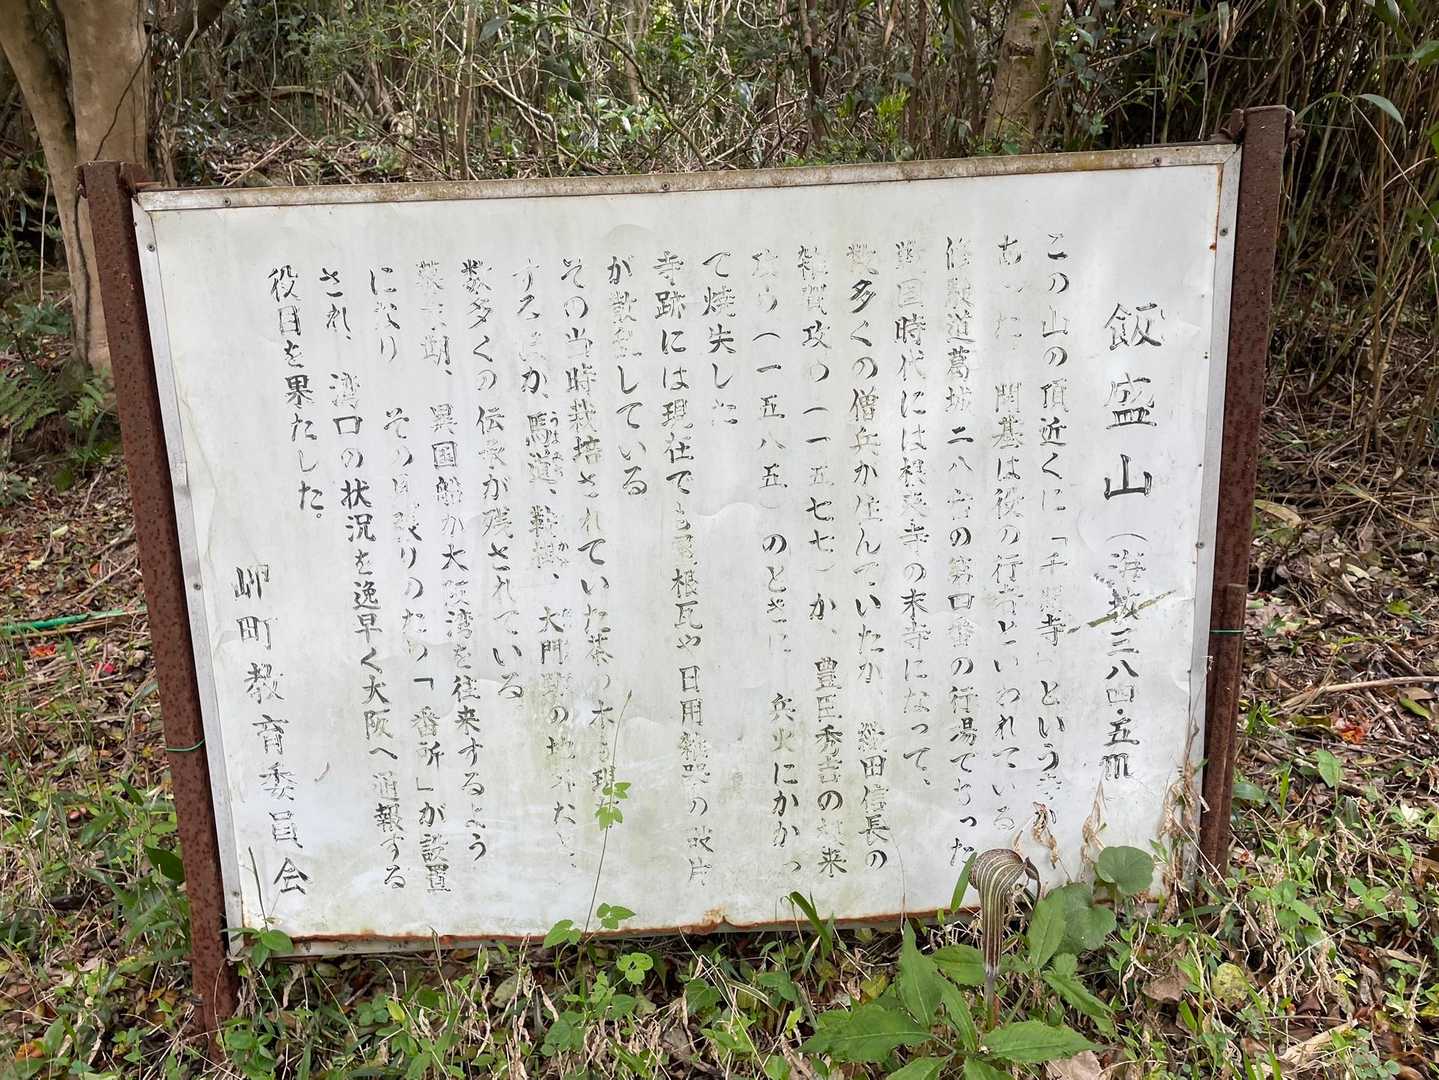 飯盛山(海抜三八四・五m)
この山の頂近くに「千間寺」という寺が
あった 開基は役の行者といわれている
修験道葛城二八宿の第四番の行場であった
戦国時代には根来寺の末寺になって、
数多くの僧兵が住んでいたが、織田信長の
雑賀攻め(一五七七)か、豊臣秀吉の根来
攻め(一五八五)のときに 兵火にかかっ
て焼失した
寺跡には現在でも屋根瓦や日用雑器の破片
が散乱している
その当時栽培されていた茶の木も現
するほか、馬道、鞍掛、大門 の地名など、
数多くの伝承が残されている
幕末期、異国船が大阪湾を往来するよう
になり その見張りのため「番所」が設置
され、湾口の状況を逸早く大阪へ通報する
役目を果たした。
岬町教育委員会